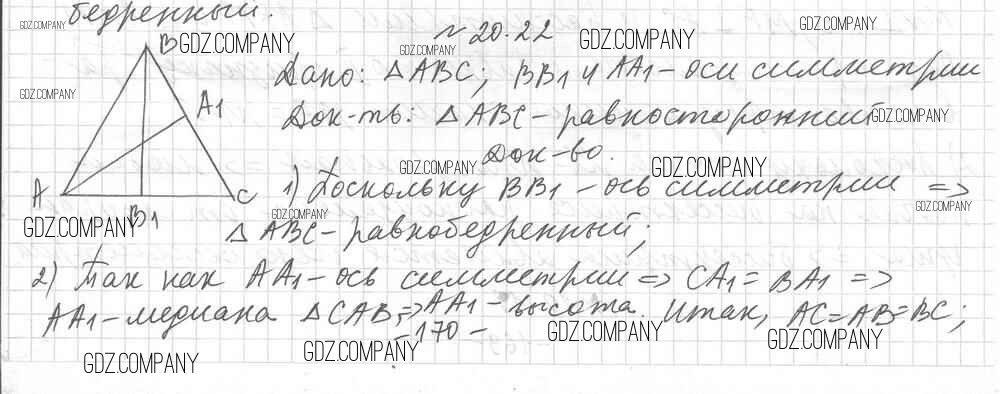 бедренный.
GDZ.COMPANY
№ 20.22
GDZ.COMPANY
GDZ.COMPANY
GDZ.COMPANY
GDZ.COMPANY
B
Дано: △ABC; BB1 и AA1 - оси симметрии
GDZ.COMPANY
A1
Док-ть: △ABC - равносторонний
GDZ.COMPANY
Док-во.
GDZ.COMPANY
GDZ.COMPANY
A
C
B1
1) Поскольку BB1 - ось симметрии =>
GDZ.COMPANY
GDZ.COMPANY
GDZ.COMPANY
△ABC - равнобедренный;
2) Так как AA1 - ось симметрии => CA1 = BA1 =>
AA1 - медиана △CAB, => AA1 - высота. Итак, AC=AB=BC;
- 170 -
GDZ.COMPANY
GDZ.COMPANY
GDZ.COMPANY
GDZ.COMPANY